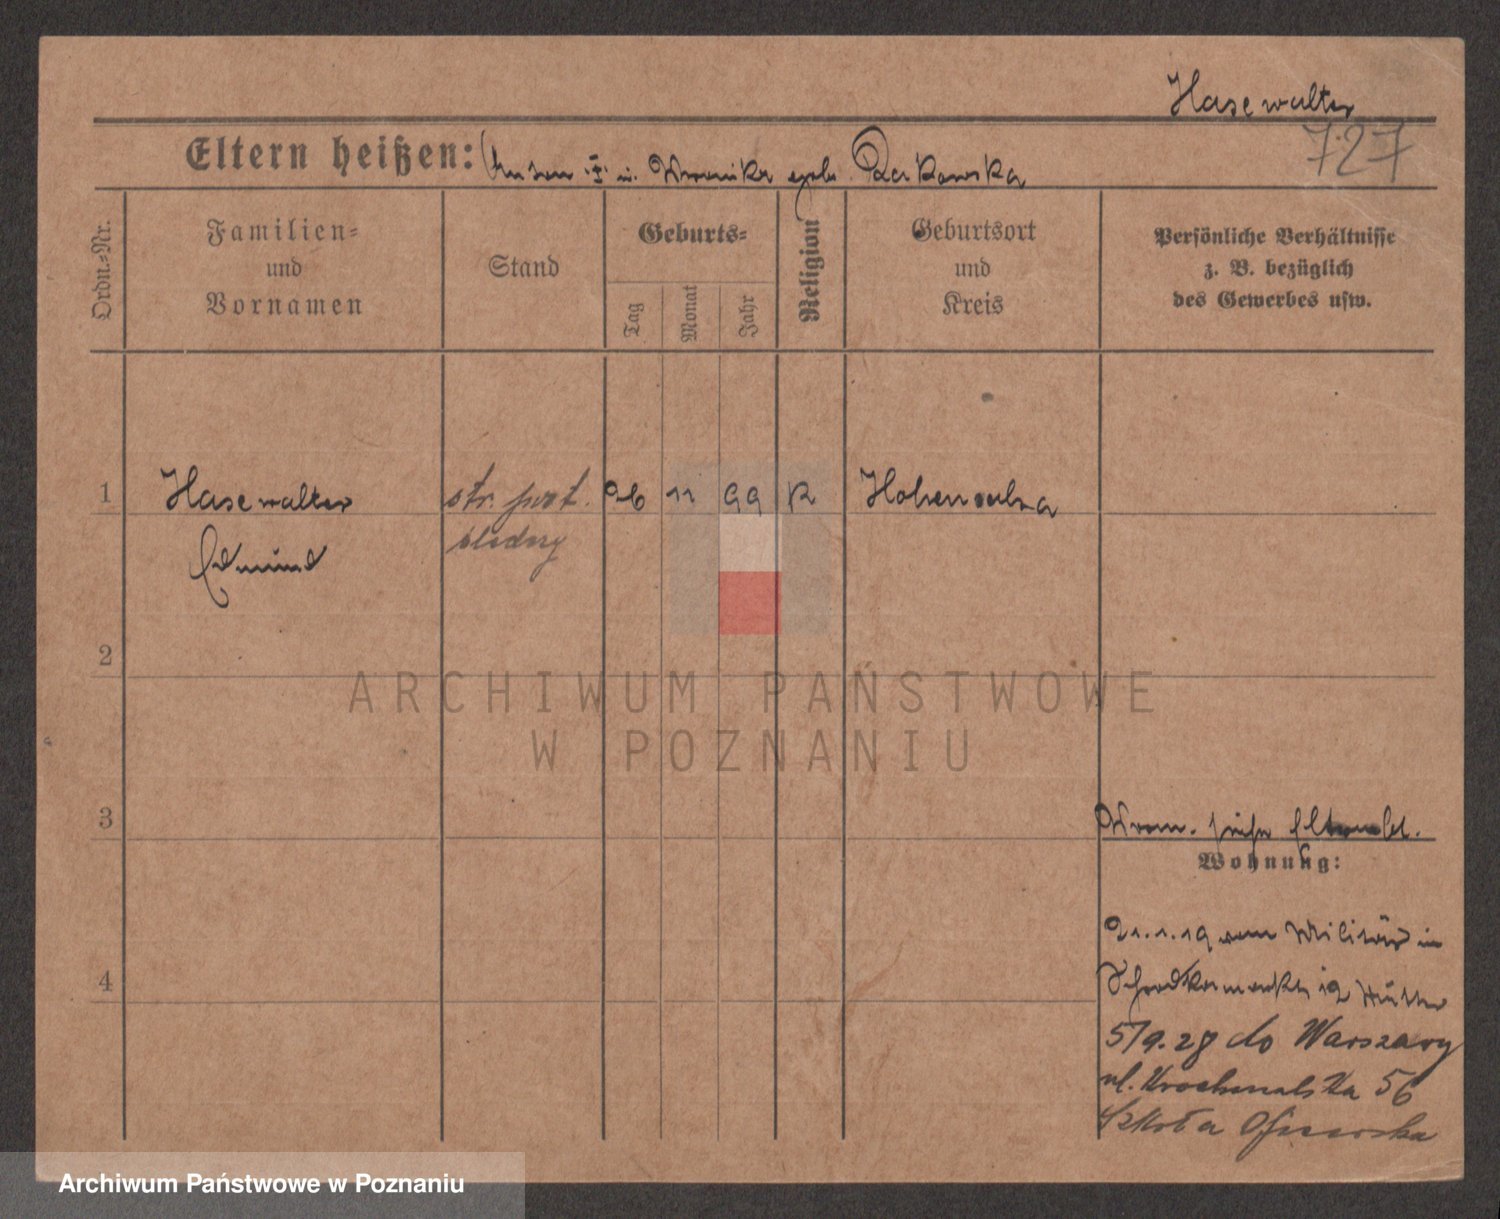 Hasewalter
727
Eltern heißen: Anton † u. Veronika geb.
Ordn.-Nr.
Familien-
und
Vornamen
Stand
Geburts-
Tag
Monat
Jahr
Religion
Geburtsort
und
Kreis
Persönliche Verhältnisse
z. B. bezüglich
des Gewerbes usw.
1 Hasewalter str. 11 99 K Hohensalza
Edmund
2
ARCHIWUM PAŃSTWOWE
W POZNANIU
3
Wohnung:
21.1.19 vom Militär in
4
19 Mutter
5/9.28 do Warszawy
ul. Krochmalska 56
Szkoła Oficerska
Archiwum Państwowe w Poznaniu